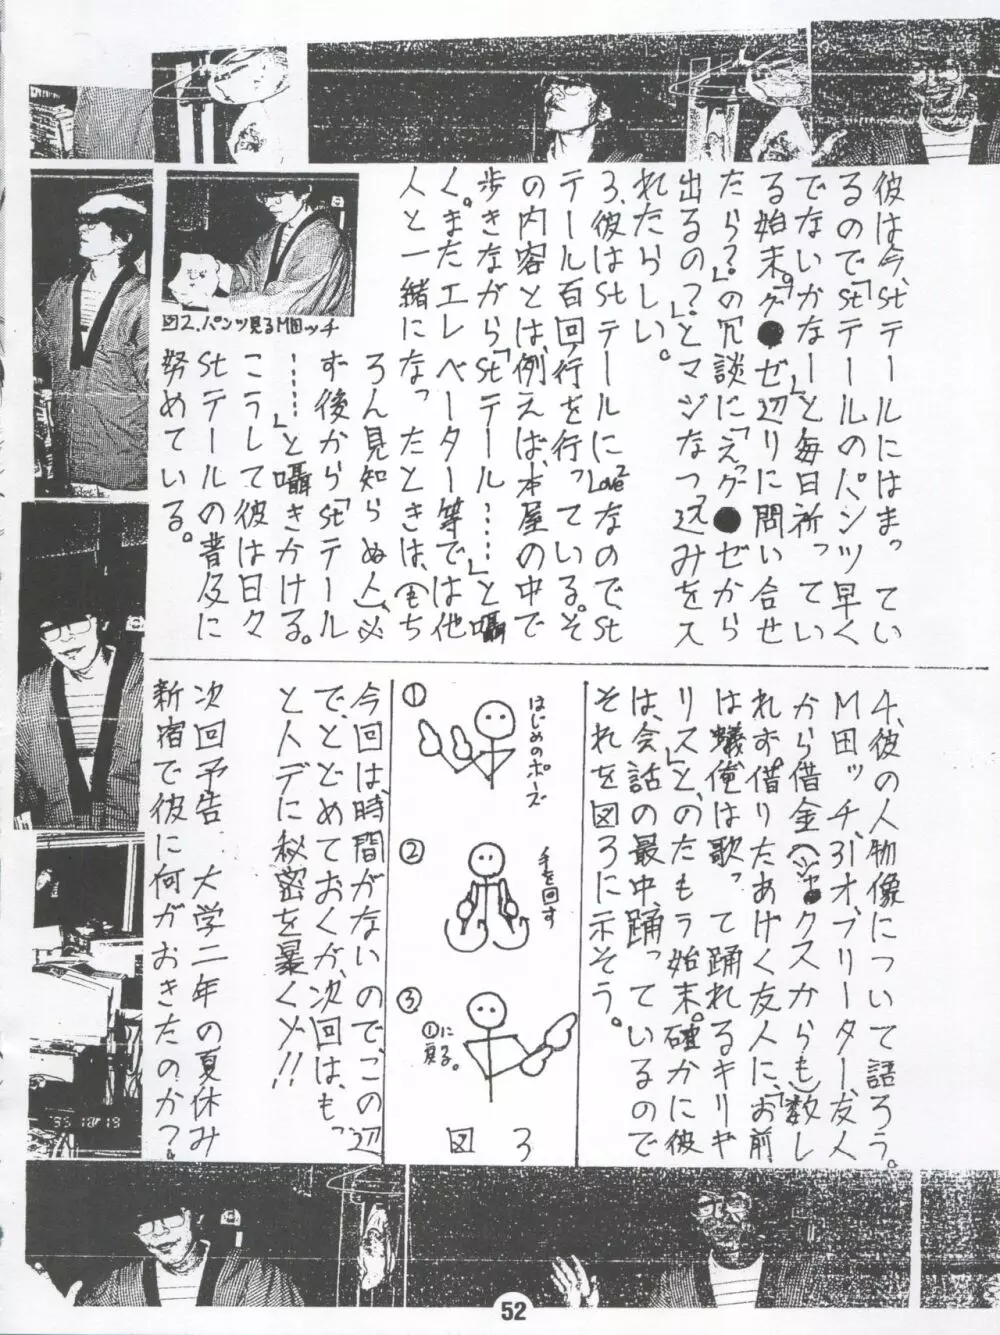 彼は今、Stテールにはまってい
るので「Stテールのパンツ早く
でないかなー」と毎日祈ってい
る始末。「グ●ゼ辺りに問い合せ
たら？」の冗談に「えっグ●ゼから
出るの？」とマジなつっ込みをス
れたらしい。
3、彼はStテールにLove2なのでSt
テール百回行を行っている。そ
の内容とは、例えば、本屋の中で
歩きながら「Stテール……」と囁
く。またエレベーター等では他
人と一緒になったときは、(もち
ろん見知らぬ人)必
ず後から「Stテール
……」と囁きかける。
こうして彼は日々
Stテールの普及に
努めている。
図2.パンツ見るM田ッチ
4、彼の人物像について語ろう。
M田ッチ、31才、フリーター、友人
から借金(ジャ●クスからも)数し
れず。借りたあげく友人に、「お前
は蟻、俺は歌って踊れるキリギ
リス」と、のたもう始末。確かに彼
は、会話の最中、踊っているので
それを図3に示そう。
①
はじめのポーズ
②
手を回す
③
①に
戻る。
図 3
今回は、時間がないので、この辺
で、とどめておくが、次回は、もっ
と人デに秘密を暴くゾ!!
次回予告 大学二年の夏休み
新宿で彼に何がおきたのか？
52